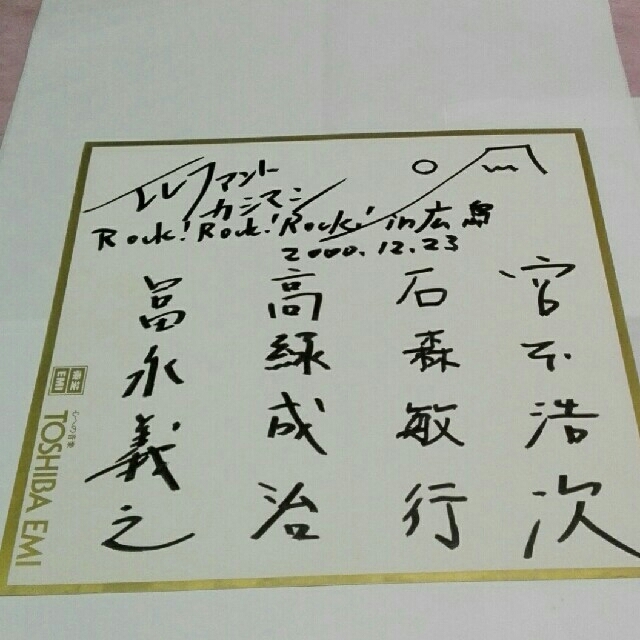 エレファント
カシマシ
Rock! Rock! Rock! in 広島
2000.12.23
宮本浩次
石森敏行
高緑成治
冨永義之
東芝
EMI
TOSHIBA EMI